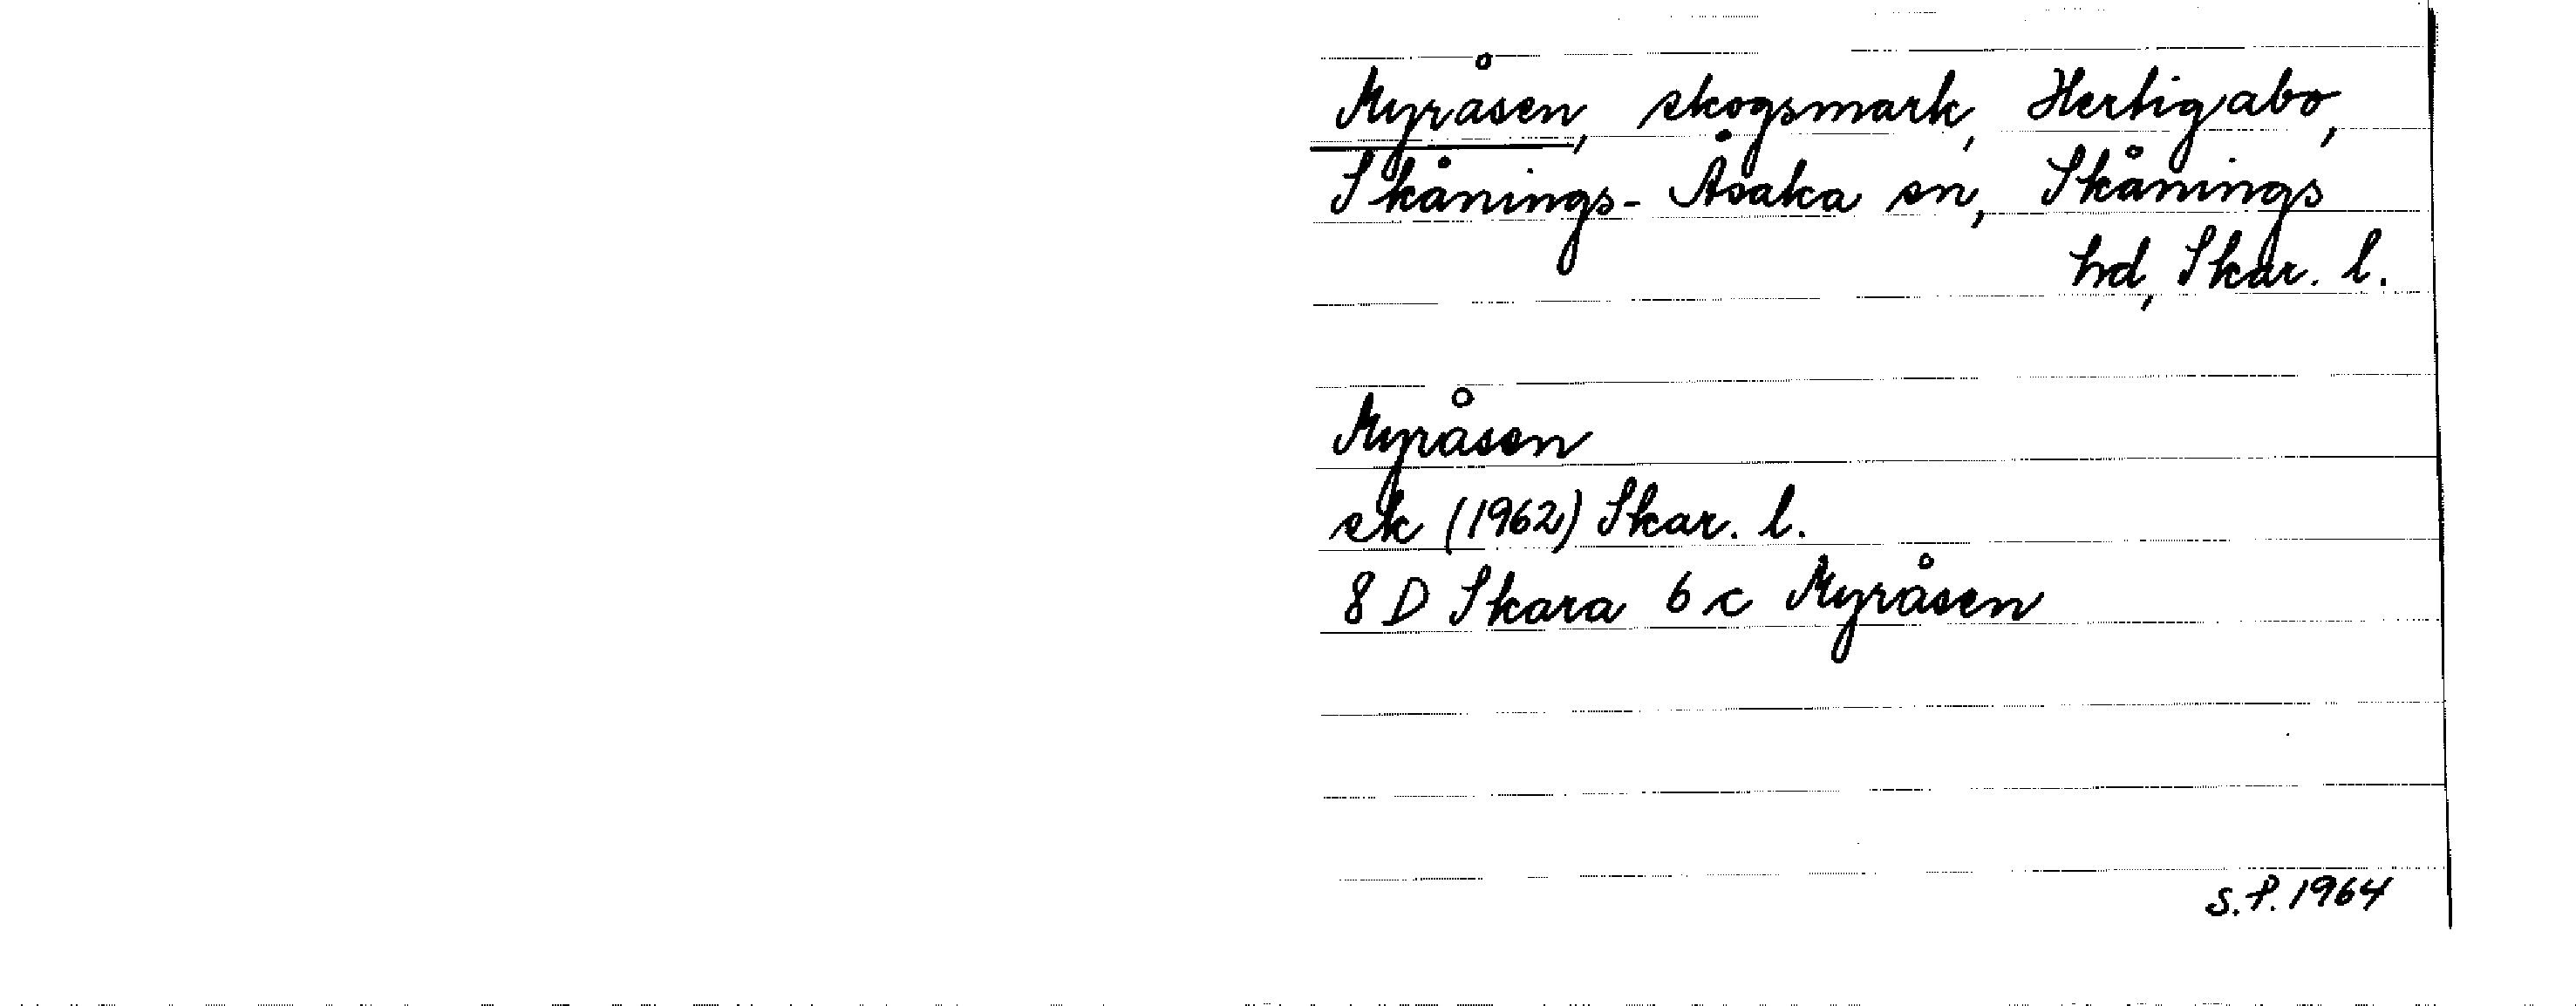 Myråsen, skogsmark, Hertigabo,
Skånings-Åsaka sn, Skånings
hd, Skar. l.
Myråsen
ek (1962) Skar. l.
8 D Skara 6 c Myråsen
S.P. 1964